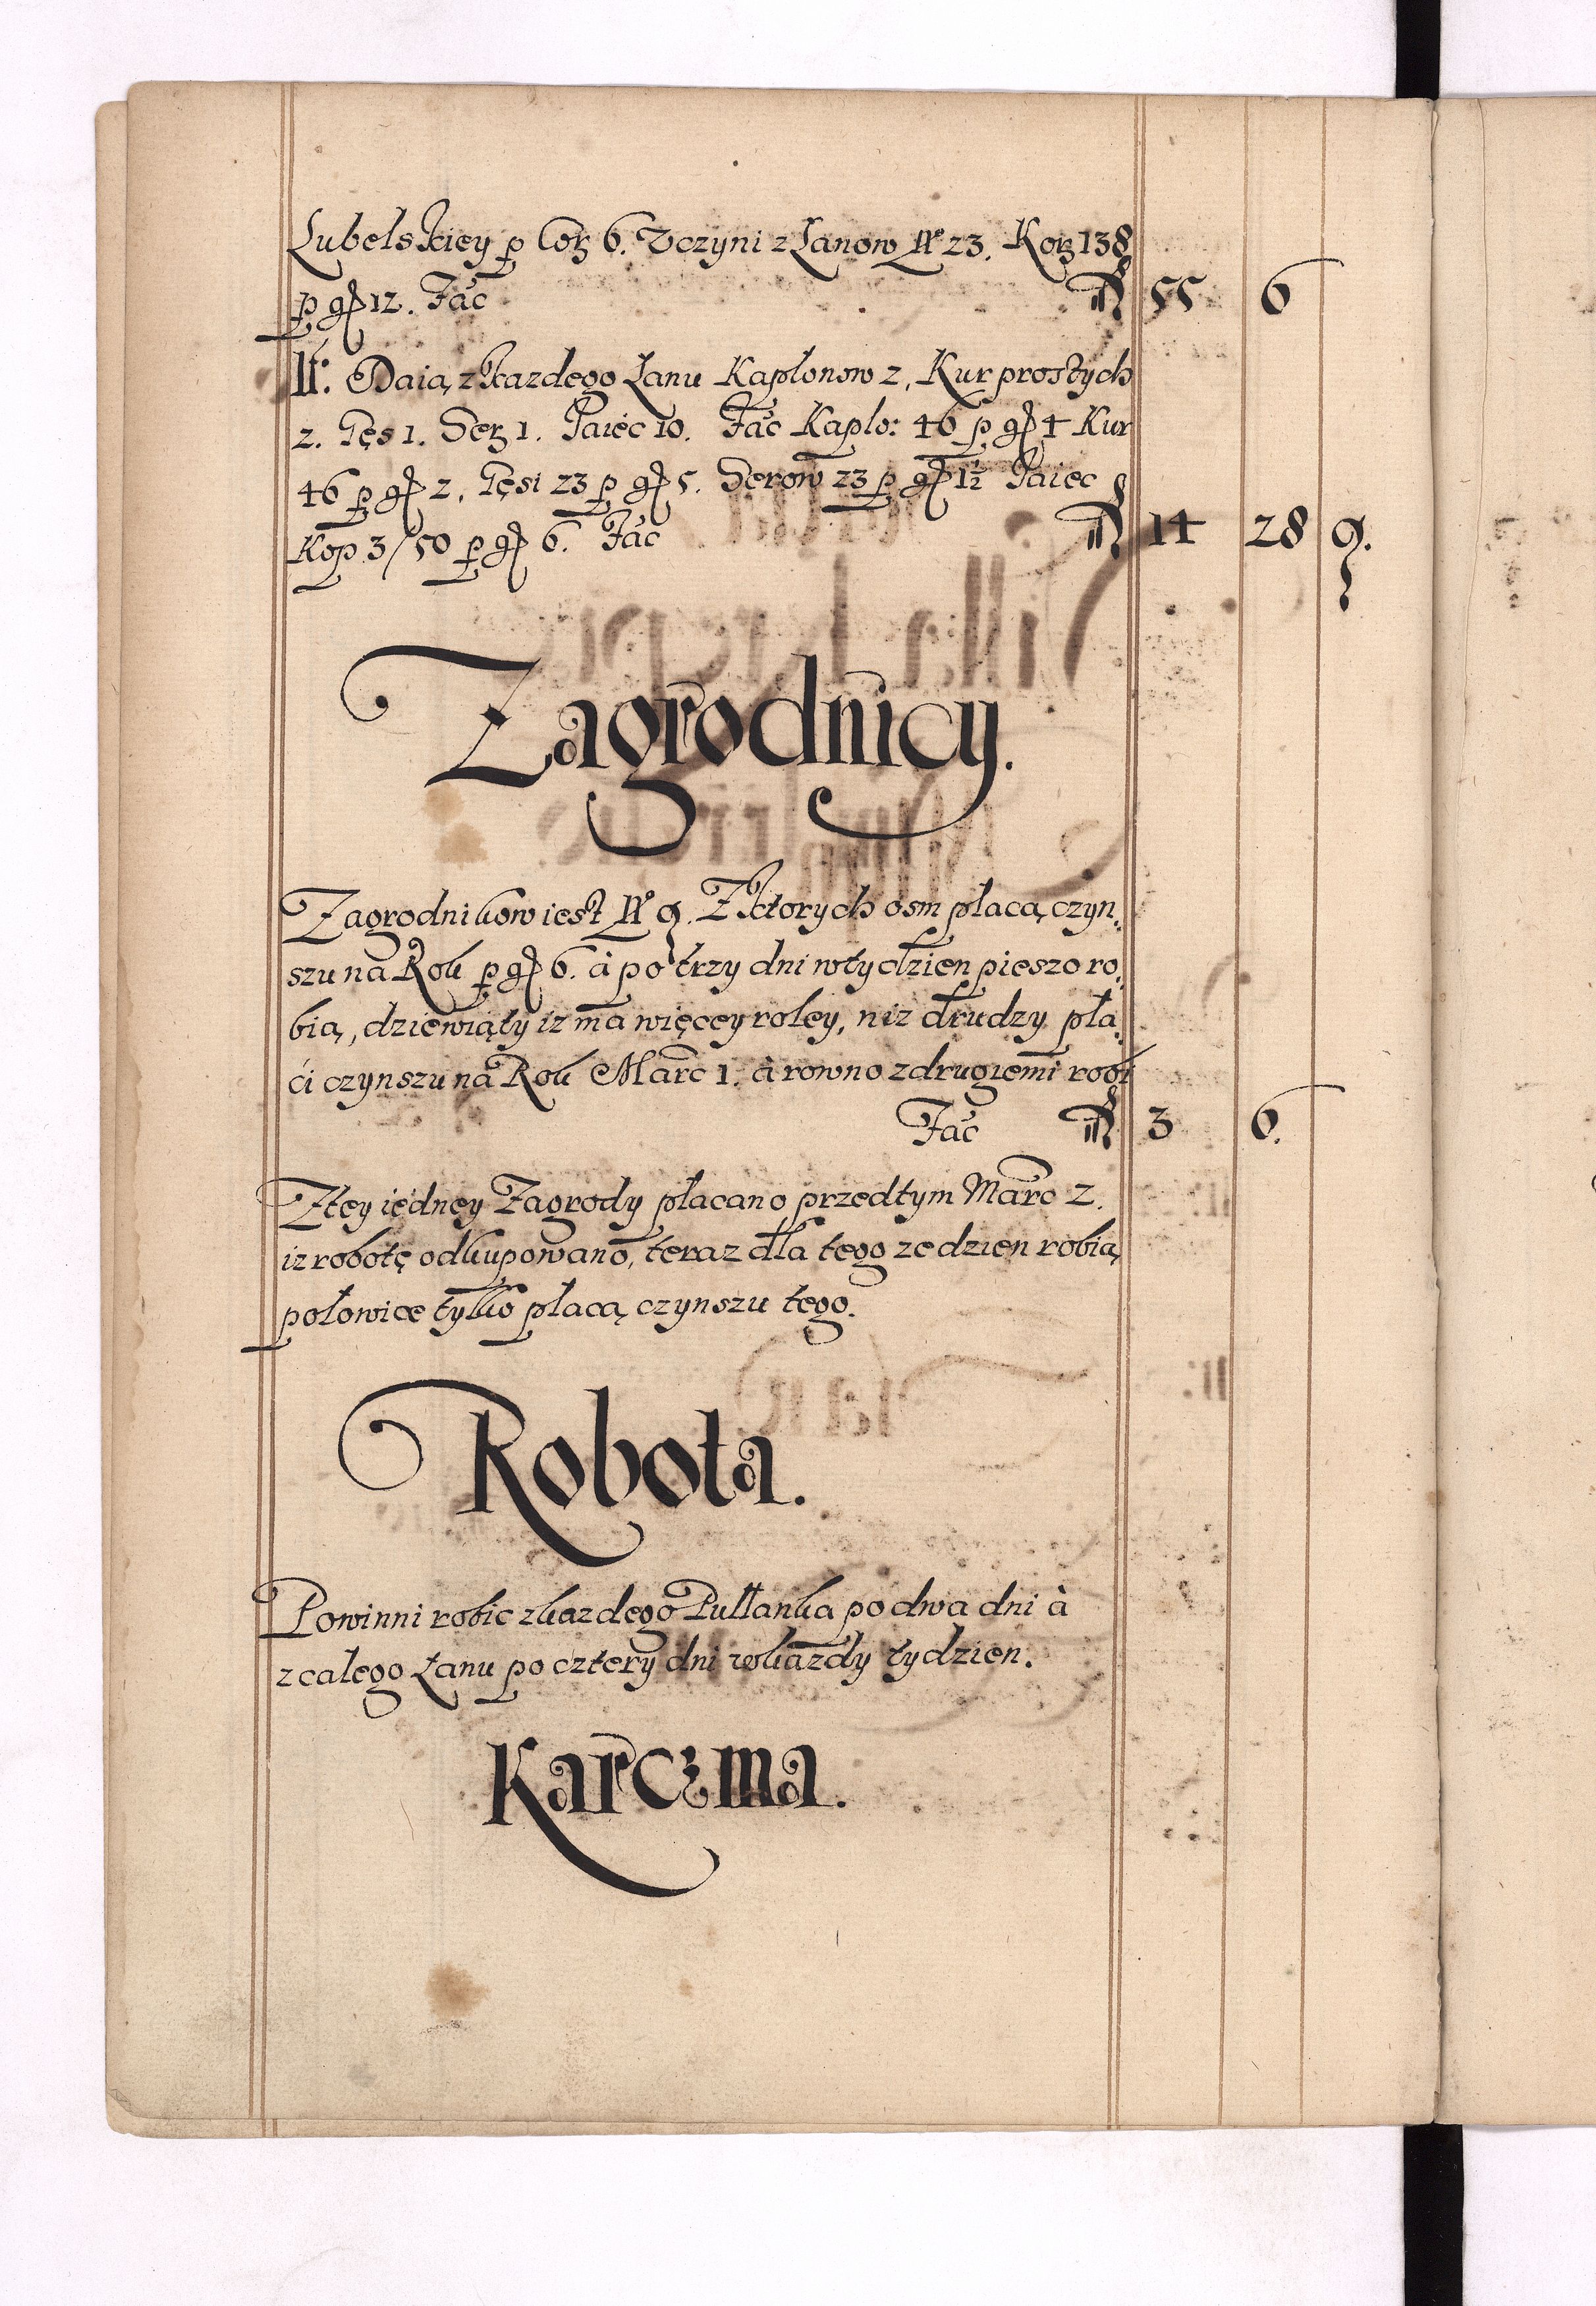 Lubelskiey p Corz 6. Vczyni z Łanow No 23. Korz 138
p gr 12. Fac fl 55 6
It: Daią z kazdego Łanu Kapłonow 2, Kur prostych
2. Gęs 1. Serz 1. Jaiec 10. Fac Kaplo: 46 p gr 4 Kur
46 p gr 2, Gęsi 23 p gr 5. Serow 23 p gr 1½ Jaiec
Kop 3/50 p gr 6. Fac fl 14 28 9.
Zagrodnicy.
Zagrodnikow iest No 9. Z ktorych osm płacą czyn„
szu na Rok p gr 6. à po trzy dni w tydzien pieszo ro„
bią, dziewiąty iz ma więcey roley, niz drudzy pła„
ci czynszu na Rok Marc 1. à rowno z drugiemi robi
Fac fl 3 6.
Z tey iedney Zagrody płacano przedtym Marc 2.
iz robotę odkupowano, teraz dla tego ze dzien robią
połowice tylko płacą czynszu tego.
Robota.
Powinni robic z kazdego Pułłanka po dwa dni à
z całego Łanu po cztery dni w kazdy tydzien.
Karczma.